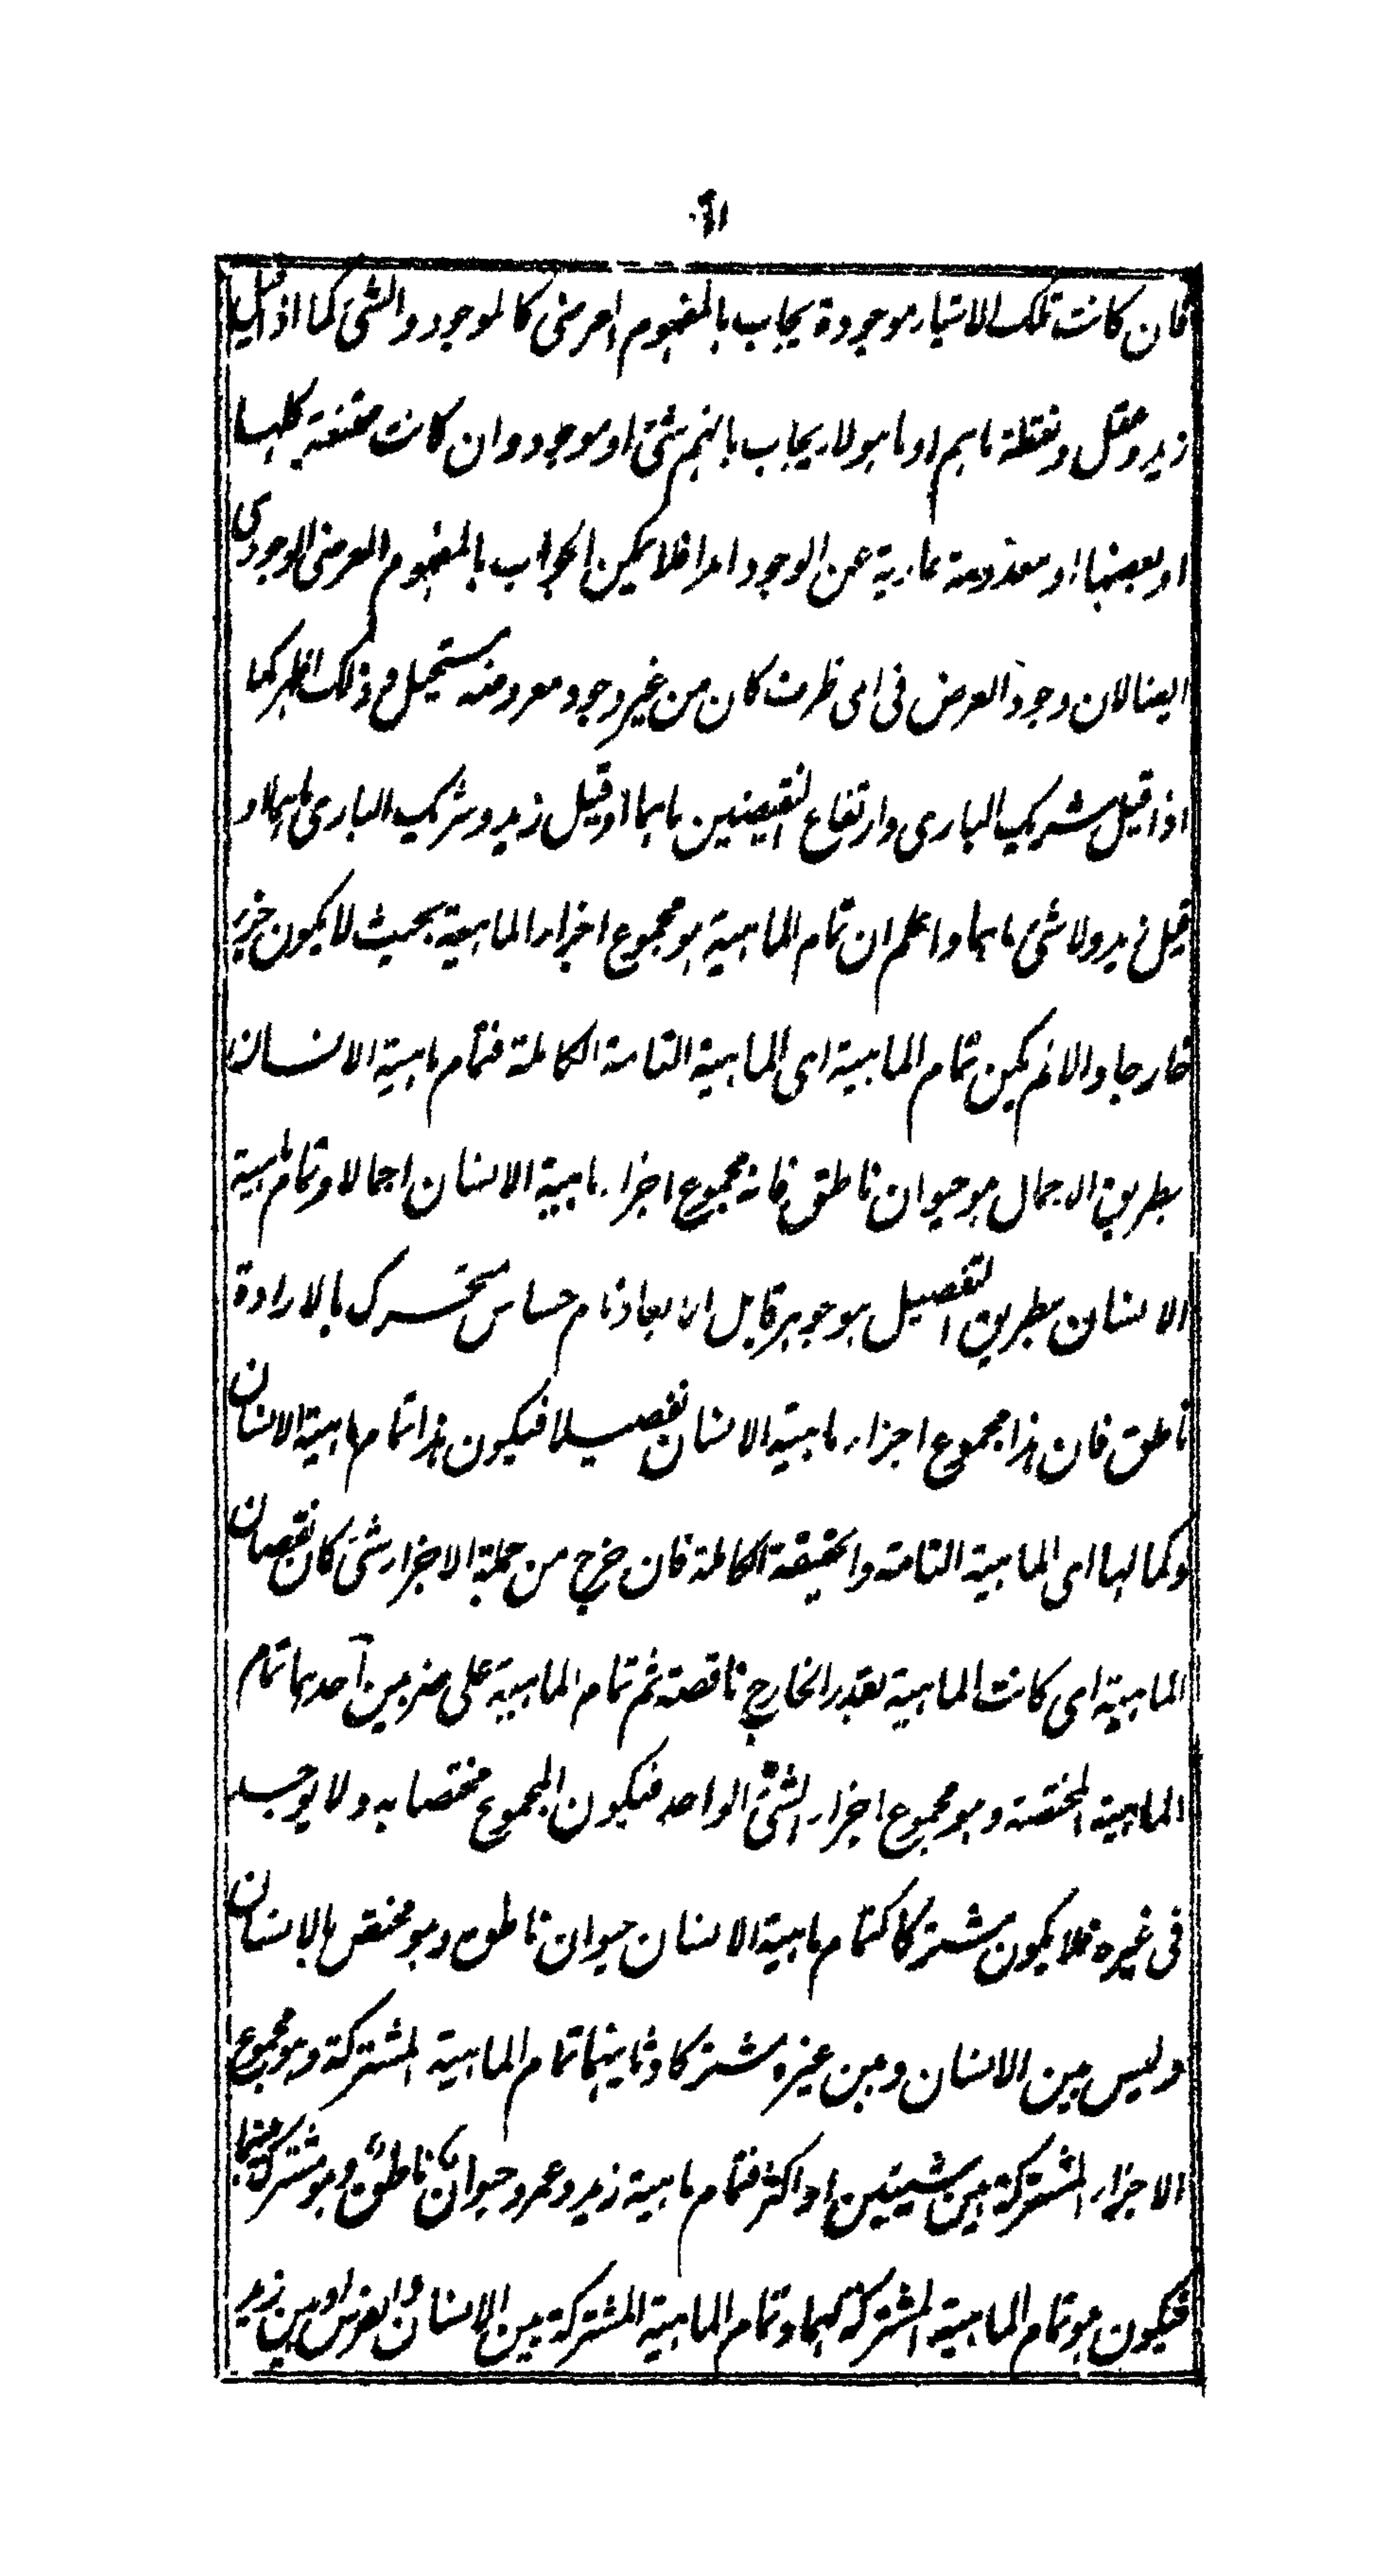 فان كانت تلك الاشياء موجودة يجاب بالمفهوم العرضى كالموجود والشىء كما اذا قيل
زيد وعقل ونقطة ما هم او ما هولاء يجاب بانهم شىء او موجود وان كانت ممتنعة كلها
او بعضها او معدومة عارية عن الوجود ابدا فلا يمكن الجواب بالمفهوم العرضى الوجودى
ايضا لان وجود العرض فى اى ظرف كان من غير وجود معروضه مستحيل وذلك اظهر كما
اذا قيل شريك البارى وارتفاع النقيضين ما هما او قيل زيد وشريك البارى ما هما او
قيل زيد ولا شىء ما هما واعلم ان تمام الماهية هو مجموع اجزاء الماهية بحيث لا يكون جزء
خارجا والا لم يكن تمام الماهية اى الماهية التامة الكاملة فتمام ماهية الانسان
بطريق الاجمال هو حيوان ناطق فانه مجموع اجزاء ماهية الانسان اجمالا وتمام ماهية
الانسان بطريق التفصيل هو جوهر قابل الابعاد نام حساس متحرك بالارادة
ناطق فان هذا مجموع اجزاء ماهية الانسان تفصيلا فيكون هذا تمام ماهية الانسان
وكمالها اى الماهية التامة والحقيقة الكاملة فان خرج من جملة الاجزاء شىء كان نقصان
الماهية اى كانت الماهية بقدر الخارج ناقصة ثم تمام الماهية على ضربين احدهما تمام
الماهية المختصة وهو مجموع اجزاء الشىء الواحد فيكون المجموع مختصا به ولا يوجد
فى غيره فلا يكون مشتركا كتمام ماهية الانسان حيوان ناطق وهو مختص بالانسان
وليس بين الانسان وبين غيره مشتركا وثانيهما تمام الماهية المشتركة وهو مجموع
الاجزاء المشتركة بين شيئين او اكثر فتمام ماهية زيد وعمرو حيوان ناطق وهو مشترك بينهما
فيكون هو تمام الماهية المشتركة بينهما وتمام الماهية المشتركة بين الانسان والفرس او بين زيد